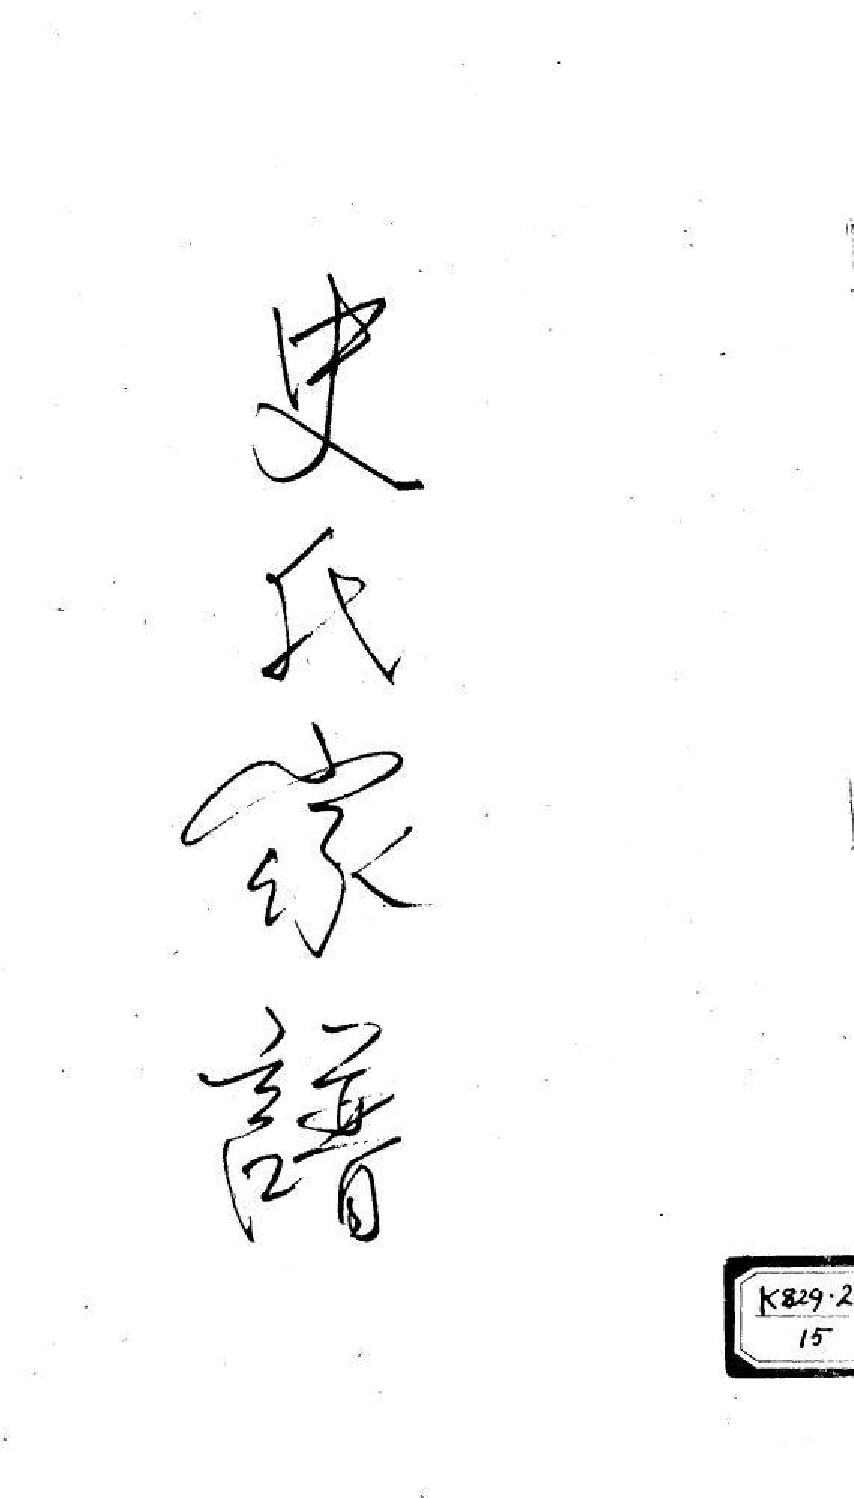 史氏家譜
K829.2
15